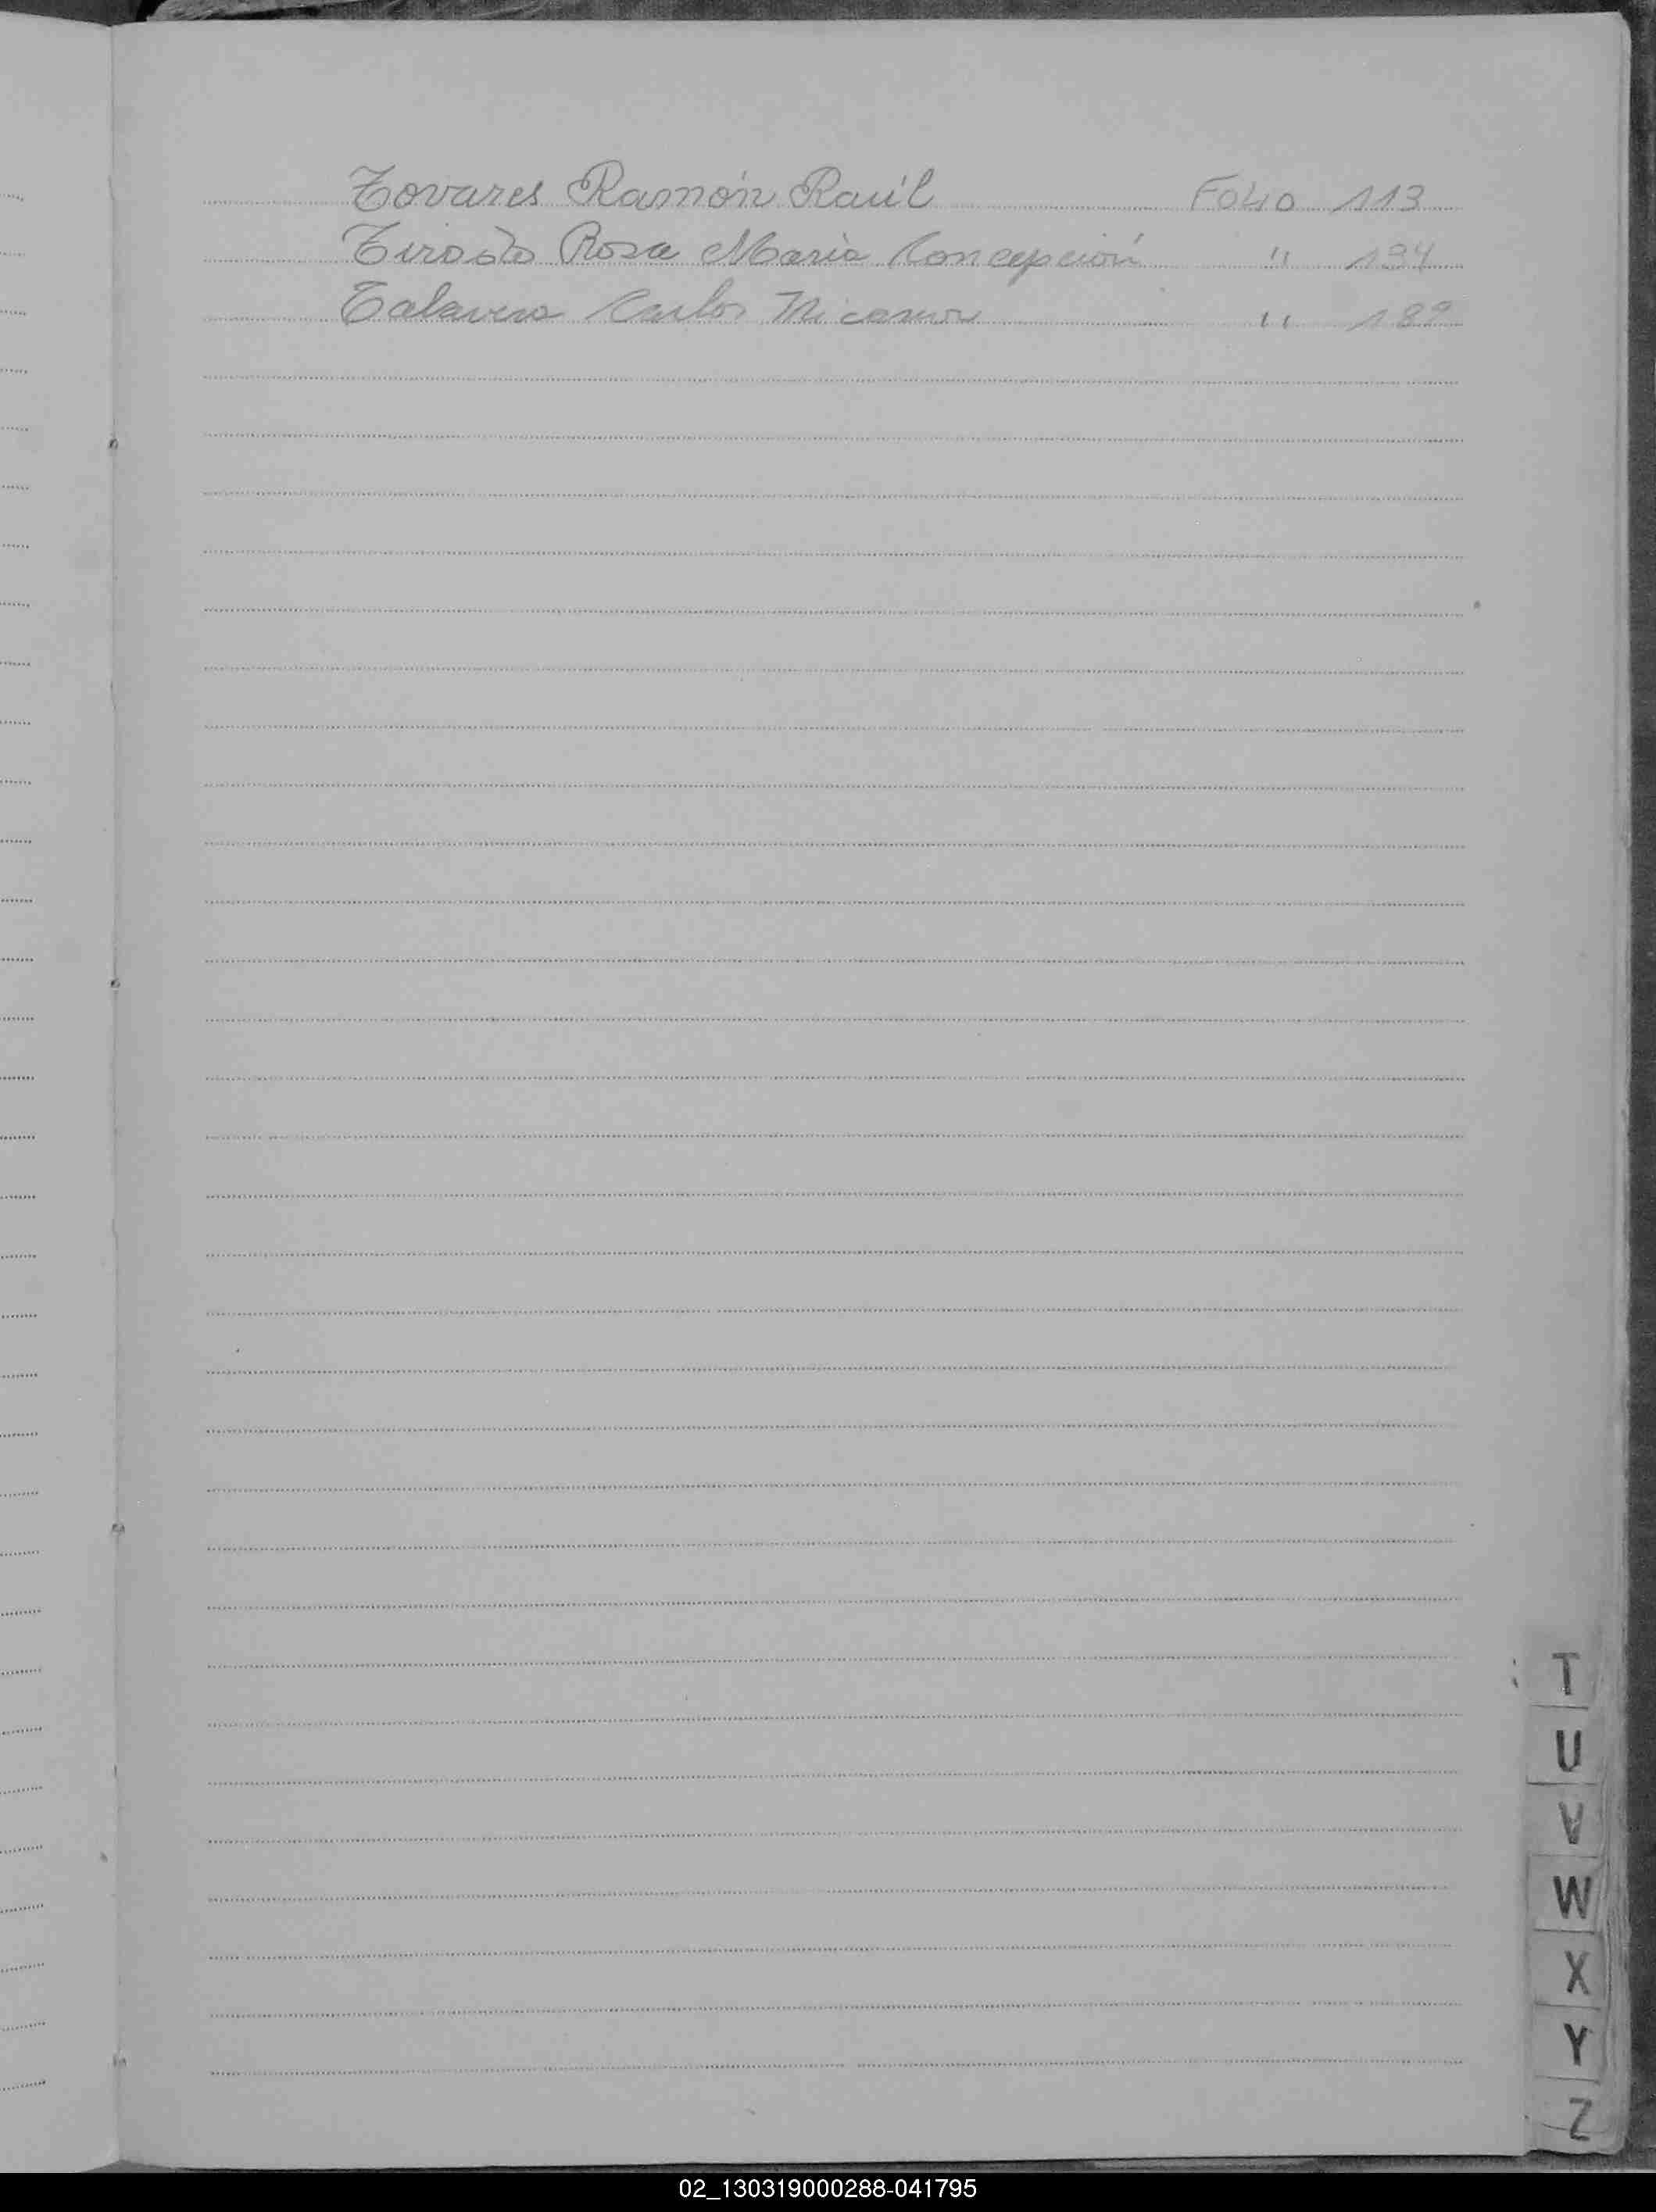 Tovares Ramón Raúl FOLIO 113
Tirado Rosa María Concepción " 134
Talavera Carlos Nicanor " 189
T
U
V
W
X
Y
Z
02_130319000288-041795